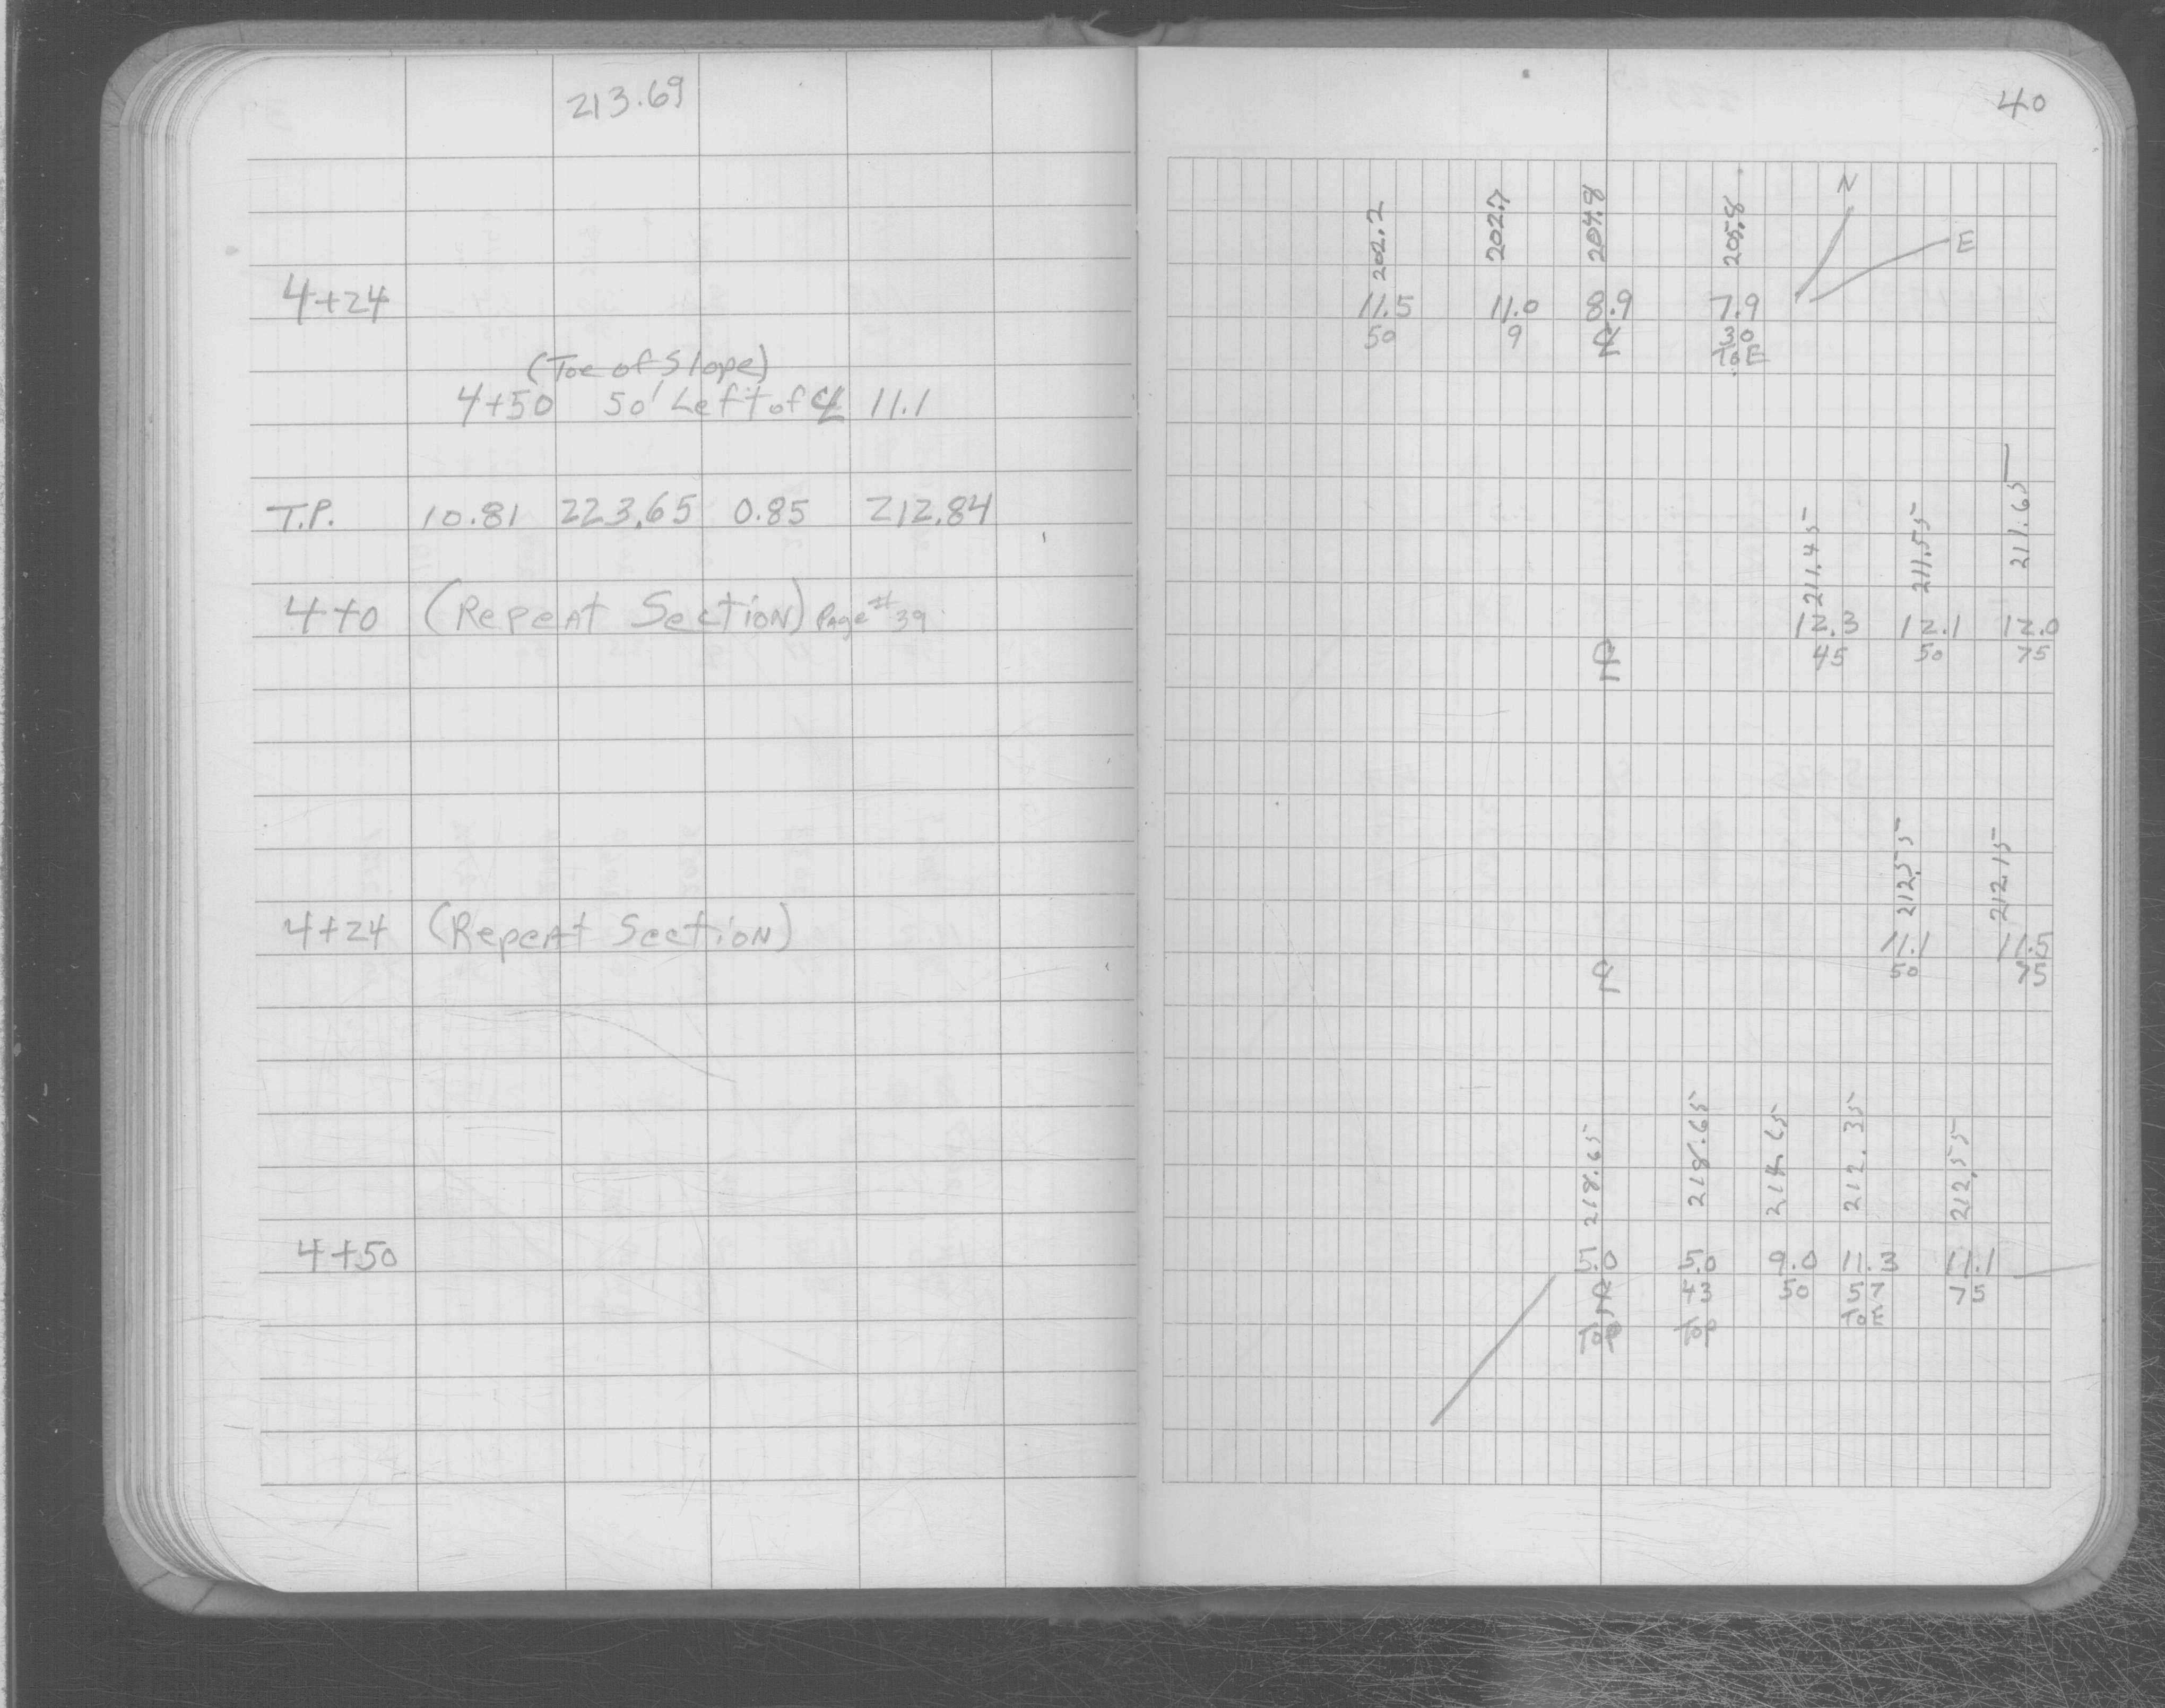 213.69
4+24
(Toe of Slope)
4+50 50' Left of ℄ 11.1
T.P. 10.81 223.65 0.85 212.84
4+0 (Repeat Section) Page #39
4+24 (Repeat Section)
4+50
40
N
E
202.2 202.7 204.8 205.8
11.5 11.0 8.9 7.9
50 9 ℄ 30
ToE
211.45 211.55 211.65
12.3 12.1 12.0
℄ 45 50 75
212.55 212.15
11.1 11.5
℄ 50 75
218.65 218.65 214.65 212.35 212.55
5.0 5.0 9.0 11.3 11.1
℄ 43 50 57 75
Top Top ToE